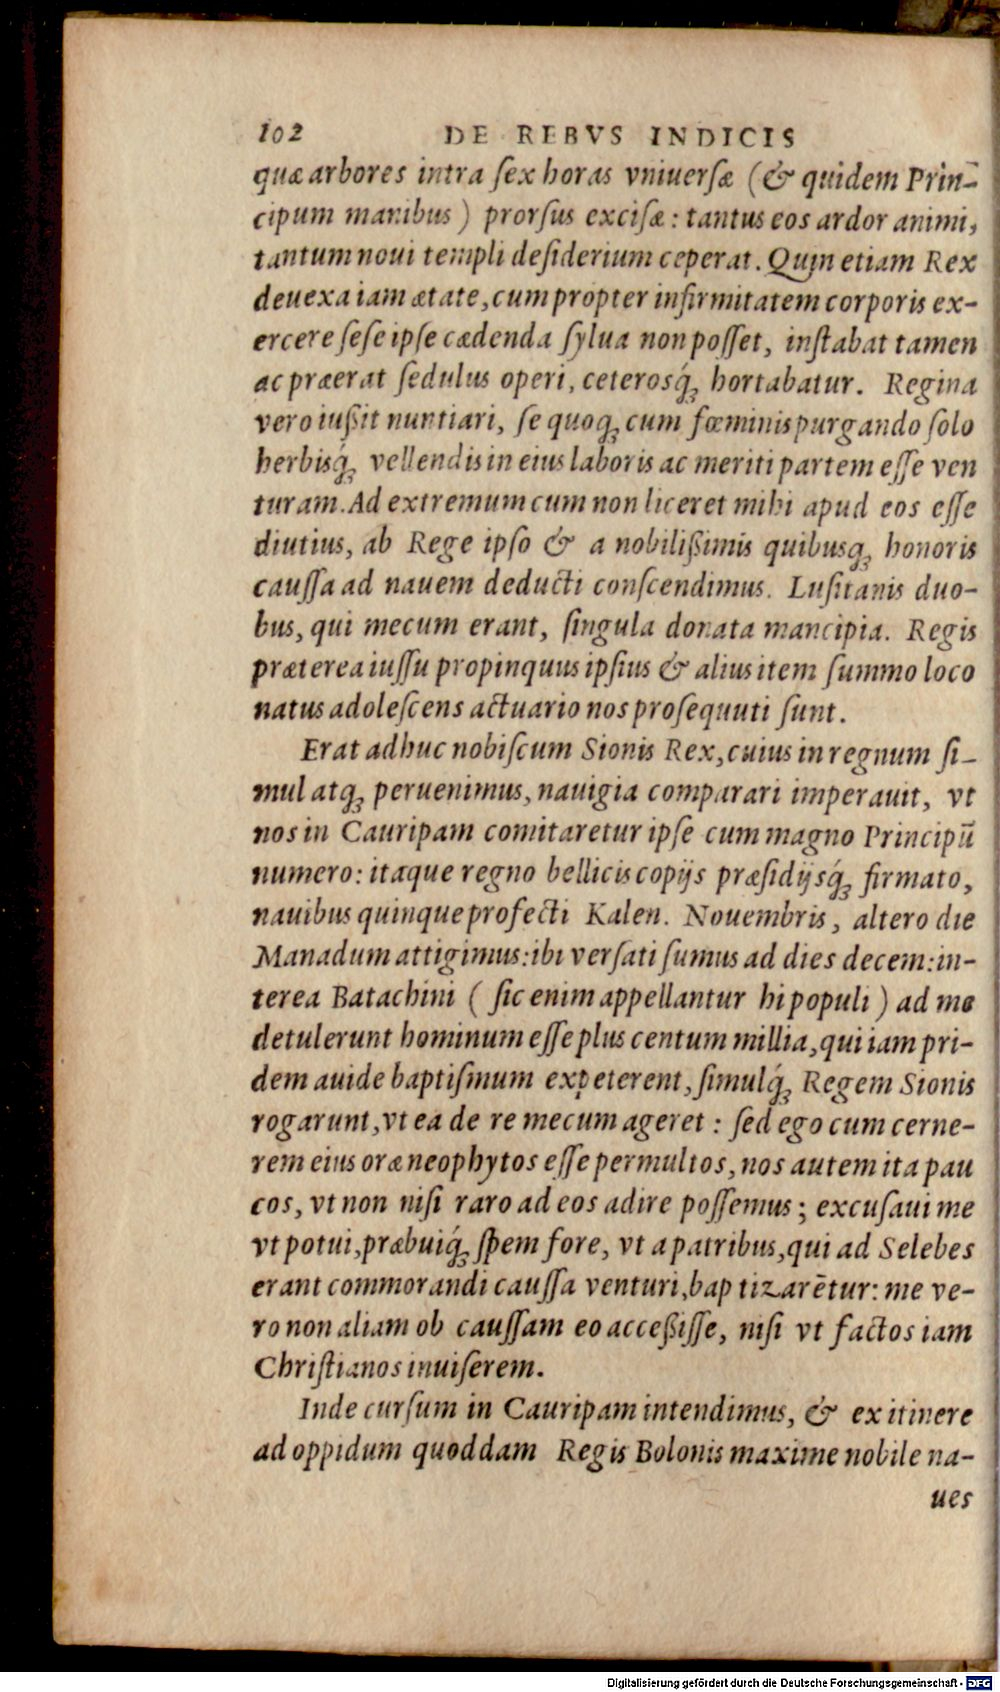 102 DE REBVS INDICIS
quæ arbores intra ſex horas vniuerſæ (& quidem Prin-
cipum manibus) prorſus exciſæ: tantus eos ardor animi,
tantum noui templi deſiderium ceperat. Quin etiam Rex
deuexa iam ætate, cum propter infirmitatem corporis ex-
ercere ſeſe ipſe cædenda ſylua non poſſet, inſtabat tamen
ac præerat ſedulus operi, ceterosq́ꝫ hortabatur. Regina
vero iußit nuntiari, ſe quoqꝫ cum fœminis purgando ſolo
herbisq́ꝫ vellendis in eius laboris ac meriti partem eſſe ven
turam. Ad extremum cum non liceret mihi apud eos eſſe
diutius, ab Rege ipſo & a nobilißimis quibusqꝫ honoris
cauſſa ad nauem deducti conſcendimus. Luſitanis duo-
bus, qui mecum erant, ſingula donata mancipia. Regis
præterea iuſſu propinquus ipſius & alius item ſummo loco
natus adoleſcens actuario nos proſequuti ſunt.
Erat adhuc nobiſcum Sionis Rex, cuius in regnum ſi-
mul atqꝫ peruenimus, nauigia comparari imperauit, vt
nos in Cauripam comitaretur ipſe cum magno Principū
numero: itaque regno bellicis copijs præſidijsq́ꝫ firmato,
nauibus quinque profecti Kalen. Nouembris, altero die
Manadum attigimus: ibi verſati ſumus ad dies decem: in-
terea Batachini (ſic enim appellantur hi populi) ad me
detulerunt hominum eſſe plus centum millia, qui iam pri-
dem auide baptiſmum expeterent, ſimulq́ꝫ Regem Sionis
rogarunt, vt ea de re mecum ageret: ſed ego cum cerne-
rem eius oræ neophytos eſſe permultos, nos autem ita pau
cos, vt non niſi raro ad eos adire poſſemus; excuſaui me
vt potui, præbuiq́ꝫ ſpem fore, vt a patribus, qui ad Selebes
erant commorandi cauſſa venturi, baptizarētur: me ve-
ro non aliam ob cauſſam eo acceßiſſe, niſi vt factos iam
Chriſtianos inuiſerem.
Inde curſum in Cauripam intendimus, & ex itinere
ad oppidum quoddam Regis Bolonis maxime nobile na-
ues
Digitalisierung gefördert durch die Deutsche Forschungsgemeinschaft - DFG